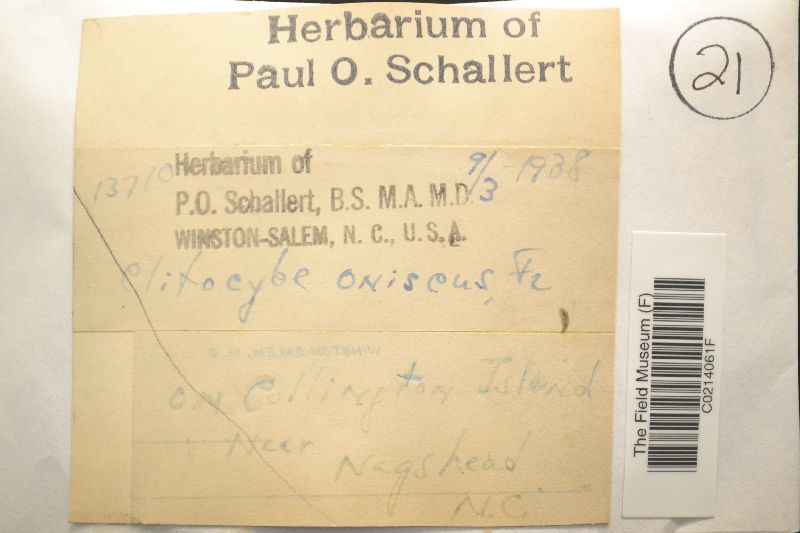 Herbarium of
Paul O. Schallert
21
13710 Herbarium of 9/3-1938
P.O. Schallert, B.S. M.A. M.D.
WINSTON-SALEM, N. C., U. S. A.
Clitocybe oniscus, Fr
WINSTON-SALEM, N. C.
on Collington Island
Near
Nagshead
N.C.
The Field Museum (F)
C0214061F